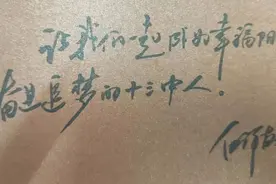 让我们一起幸福阳
奋进追梦的十三中人。
何